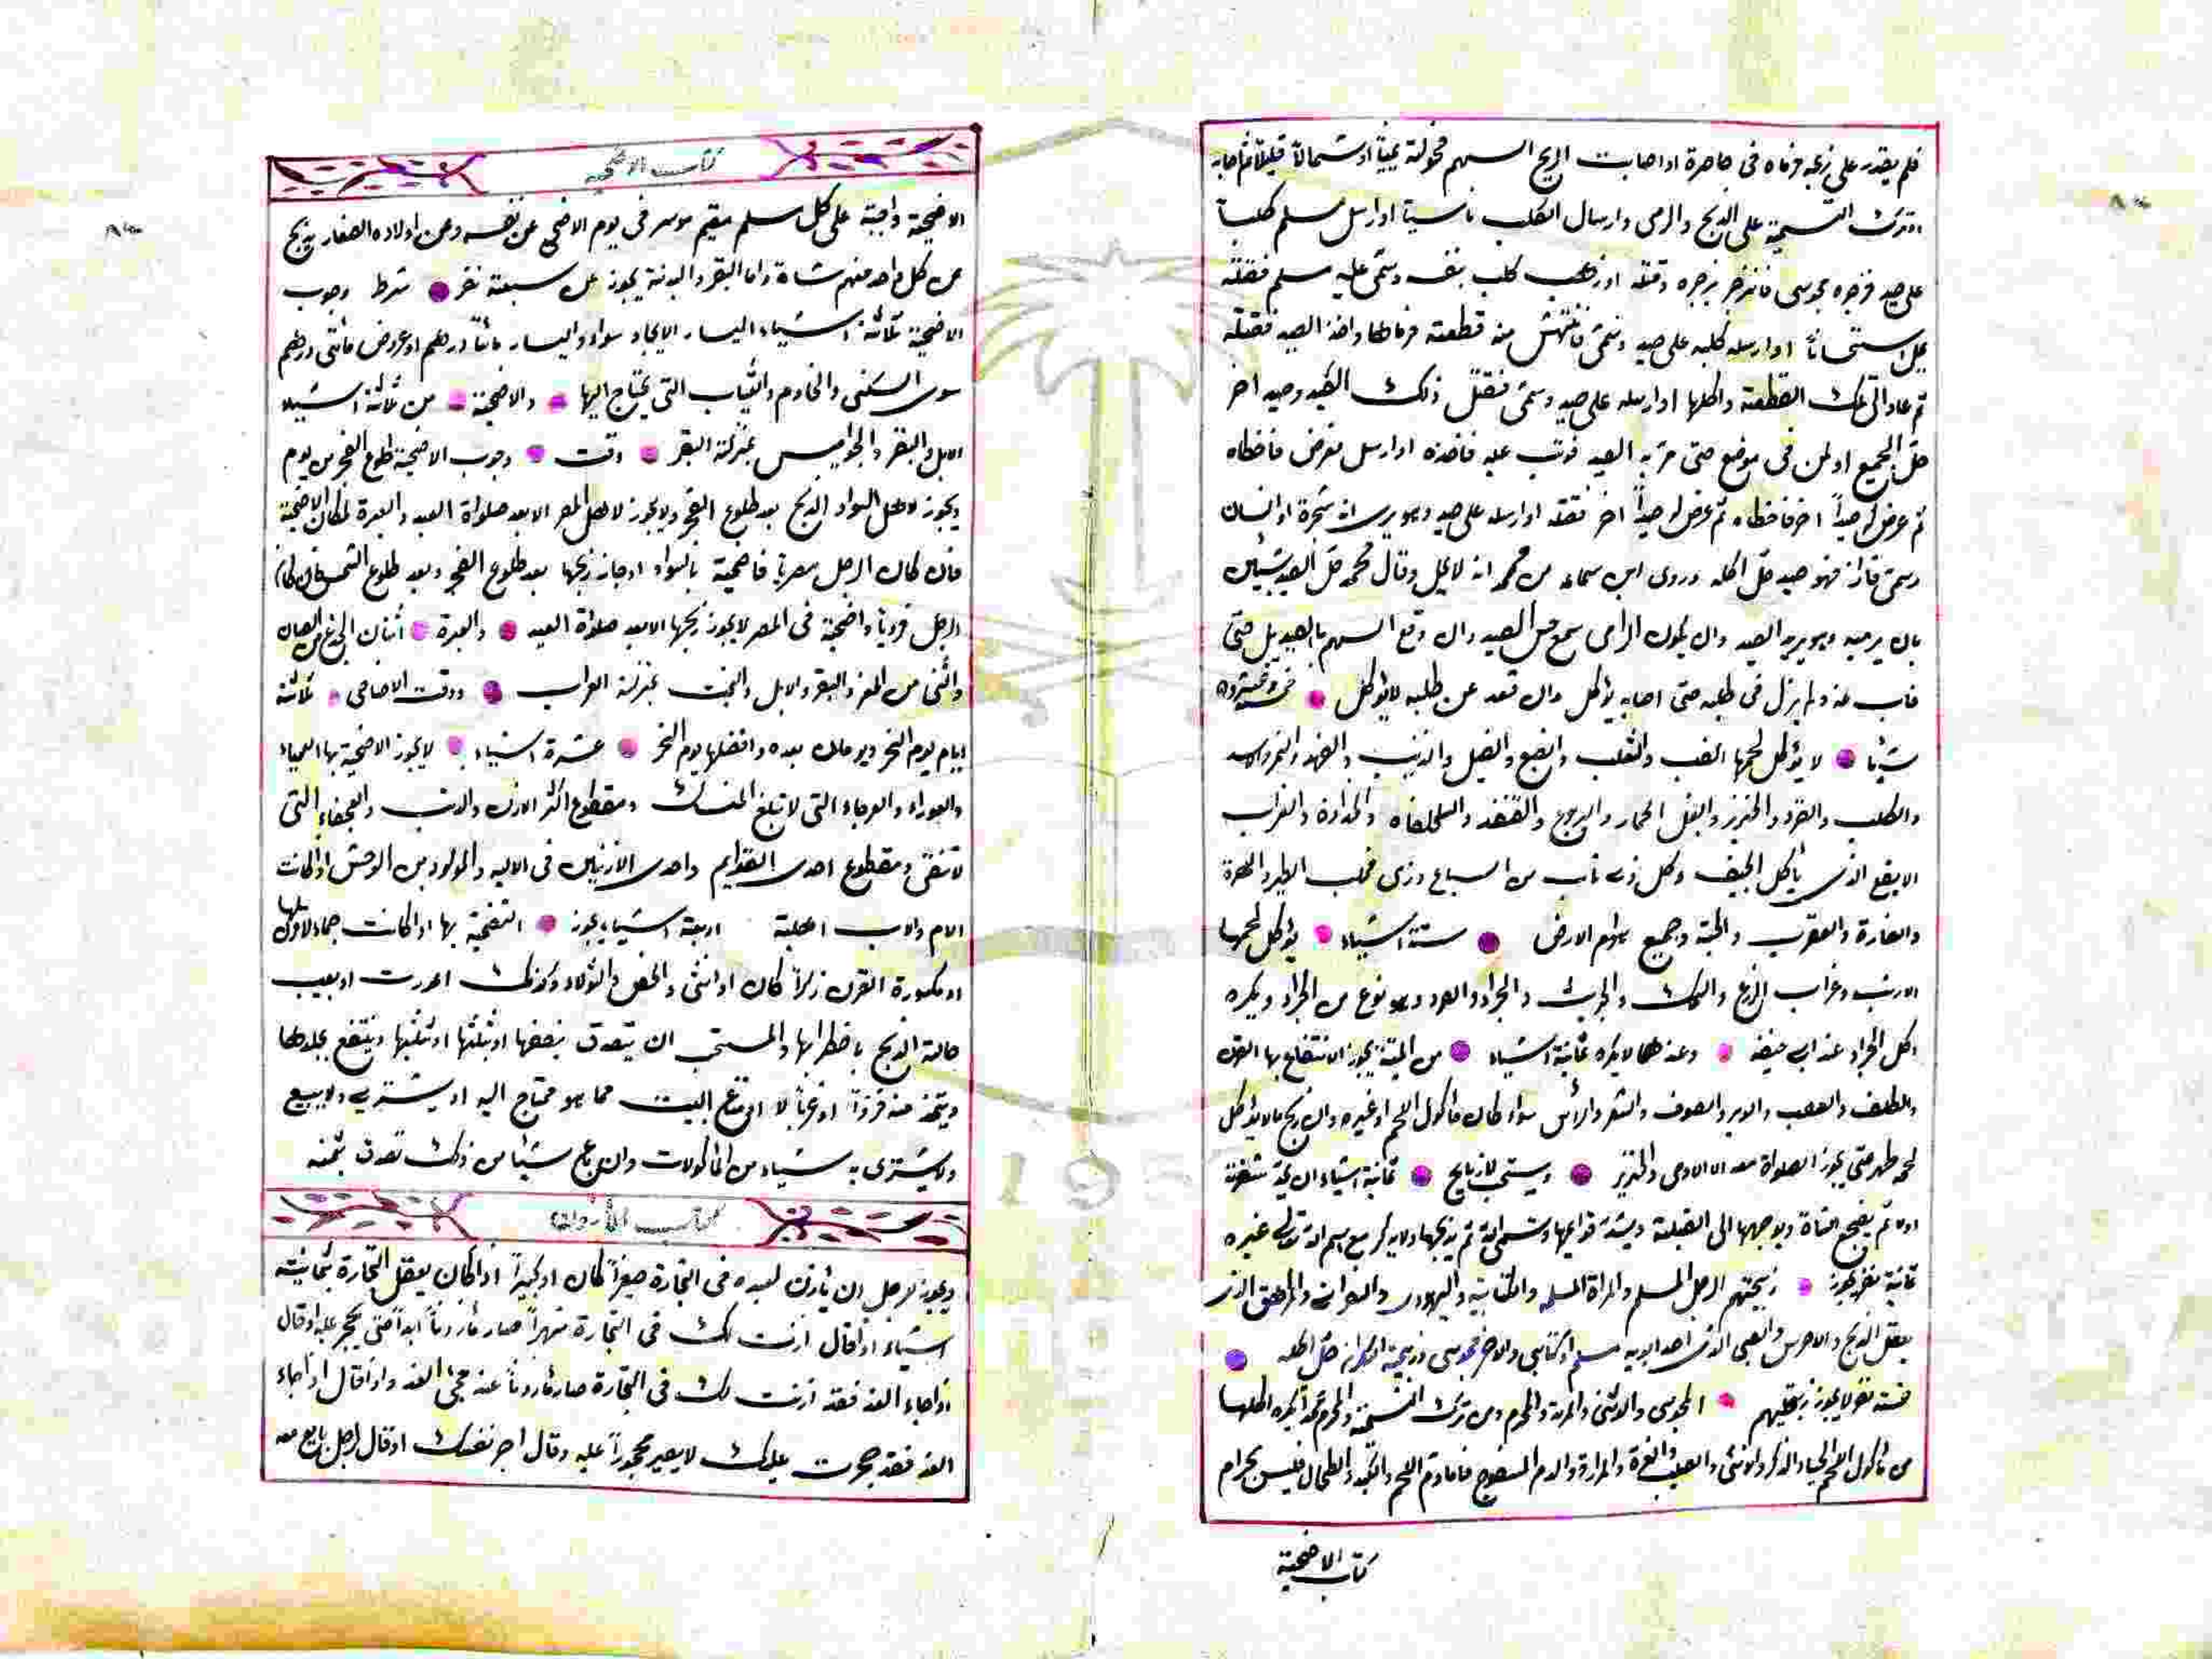 فلم يقدر على ذبحه فرماه فى خاصرة اذا اصابت الريح السهم فحولته يمينا او شمالا قليلا فاصابه
او ترك التسمية على الذبح والرمى وارسال الكلب ناسيا او ارسل مسلم كلبا
على صيد فزجره مجوسى فانزجر بزجره وقتله او ذهب كلب بنفسه وسمى عليه مسلم فقتله
يحل استحسانا او ارسل كلبه على صيد وسمى فانتهش منه قطعته فرماها واخذ الصيد فقتله
ثم عاد الى تلك القطعة واكلها او ارسله على صيد وسمى فقتل ذلك الصيد وصيد اخر
حل الجميع او كمن فى موضع حتى مر به الصيد فوثب عليه فاخذه او ارسل فعرض فاخطاه
ثم عرض له صيدا اخر فاخطاه ثم عرض له صيدا اخر فقتله او ارسله على صيد وهو يرى انه شجرة او انسان
وسمى فاذا هو صيد حل اكله وروى ابن سماعه من محمد انه لا يحل وقال محمد حل الصيد بشيئين
بان يرميه وهو يريد الصيد وان يكون الرامى سمع حس الصيد وان وقع السهم بالصيد بل حتى
غاب عنه ولم يزل فى طلبه حتى اصابه يؤكل وان قعد عن طلبه لا يؤكل خمسة وعشرون
شيئا لا يؤكل لحمها الضب والثعلب والضبع والفيل والذئب والفهد والنمر والاسد
والكلب والقرد والخنزير والبغل الحمار واليربوع والقنفذ والسلحفاه والحداءة والغراب
الابقع الذى يأكل الجيف وكل ذى ناب من السباع وذى مخلب الطير والهرة
والفارة والعقرب والحية وجميع هوام الارض ستة اشياء يؤكل لحمها
الارنب وغراب الزرع والسمك والجريث والجراد والصرد وهو نوع من الجراد ويكره
اكل الجراد عند ابى حنيفه وعندهما لا يكره ثمانية اشياء من الميتة يجوز الانتفاع بها القرن
والظلف والعصب والوبر والصوف والشعر والرأس سواء كان مأكول اللحم او غيره وان ذبح ما لا يؤكل
لحمه طهر حتى يجوز الصلواة معه الا الادمى والخنزير ويستحب للذبايح ثمانية اشياء ان يحد شفرته
اولا ثم يضجع الشاة ويوجهها الى القبلة ويشد قوايمها وتسمى الله ثم يذبحها ولا يذكر مع اسم الله تعالى غيره
ثمانية نفر يجوز ذبيحتهم الرجل المسلم والمراة المسلمه والكتابية واليهودى والنصرانى والمراهق الذى
يعقل الذبح والاخرس والصبى الذى احد ابويه مسلم او كتابى والاخر مجوسى وذبيحة السكران حل اكله
خمسة نفر لا يجوز ذبيحتهم المجوسى والوثنى والمرتد والمحرم ومن ترك التسمية والمحرم عمدا يكره اكلها
من مأكول اللحم الحياء والذكر والانثى والعصب والغدة والمرارة والدم المسفوح فاما دم اللحم والكبد والطحال فليس بحرام
كتاب الاضحية
كتاب الاضحيه
الاضحية واجبة على كل مسلم مقيم موسر فى يوم الاضحى عن نفسه وعن اولاده الصغار يذبح
عن كل واحد منهم شاة واما البقر والبدنة يجوز عن سبعة نفر شرط وجوب
الاضحية ثلاثة اشياء اليسار الايجاد سواء واليسار مائتا درهم او عروض مأتى درهم
سوى السكنى والخادم والثياب التى يحتاج اليها والاضحية من ثلاثة اشياء
الابل والبقر والجواميس بمنزلة البقر وقت وجوب الاضحية طلوع الفجر من يوم
ويجوز لاهل السواد الذبح بعد طلوع الفجر ولا يجوز لاهل المصر الا بعد صلواة العيد والعبرة لمكان الاضحية
فان كان الرجل مصريا فاضحية بالسواد اوجاز ذبحها بعد طلوع الفجر وبعد طلوع الشمس فان كان
الرجل قرويا واضحية فى المصر لا يجوز ذبحها الا بعد صلواة العيد والعبرة اثنان الجذع من الضان
والثنى من المعز والبقر والابل والبخت بمنزلة العراب ووقت الاضاحى ثلاثة
ايام يوم النحر ويومان بعده وافضلها يوم النحر عشرة اشياء لا يجوز الاضحية بها العمياء
والعوراء والعرجاء التى لا تبلغ المنسك ومقطوع اكثر الاذن والذنب والعجفاء التى
لا تنقى ومقطوع احدى القوايم واحدى الاذنين فى الاليه والمولود من الوحش اذا كانت
الام والاب اهلية اربعة اشياء يجوز التضحية بها اذا كانت جماء لا قرن لها
او مكسورة القرن ذكرا كان او انثى والخصى والثولاء وكذلك اعورت او بعيب
حالة الذبح باضطرابها والمستحب ان يتصدق بنصفها او بثلثها او ثلثيها وينتفع بجلدها
ويتخذ منه فروا او غربا لا او متاع البيت مما هو محتاج اليه او يشتريه ولا يبيع
ولا يشترى به شياء من المأكولات وان باع شيئا من ذلك تصدق بثمنه
كتاب المأذون
ويجوز للرجل ان يأذن لعبده فى التجارة صغيرا كان او كبيرا اذا كان يعقل التجارة بثمانية
اشياء اذا قال اذنت لك فى التجارة شهرا صار مأذونا ابدا حتى يحجر عليه او قال
اذا جاء الغد فقد اذنت لك فى التجارة صار مأذونا عند مجئ الغد واذا قال اذا جاء
الغد فقد حجرت عليك لا يصير محجورا عليه وقال اجر نفسك او قال لرجل بايع معه